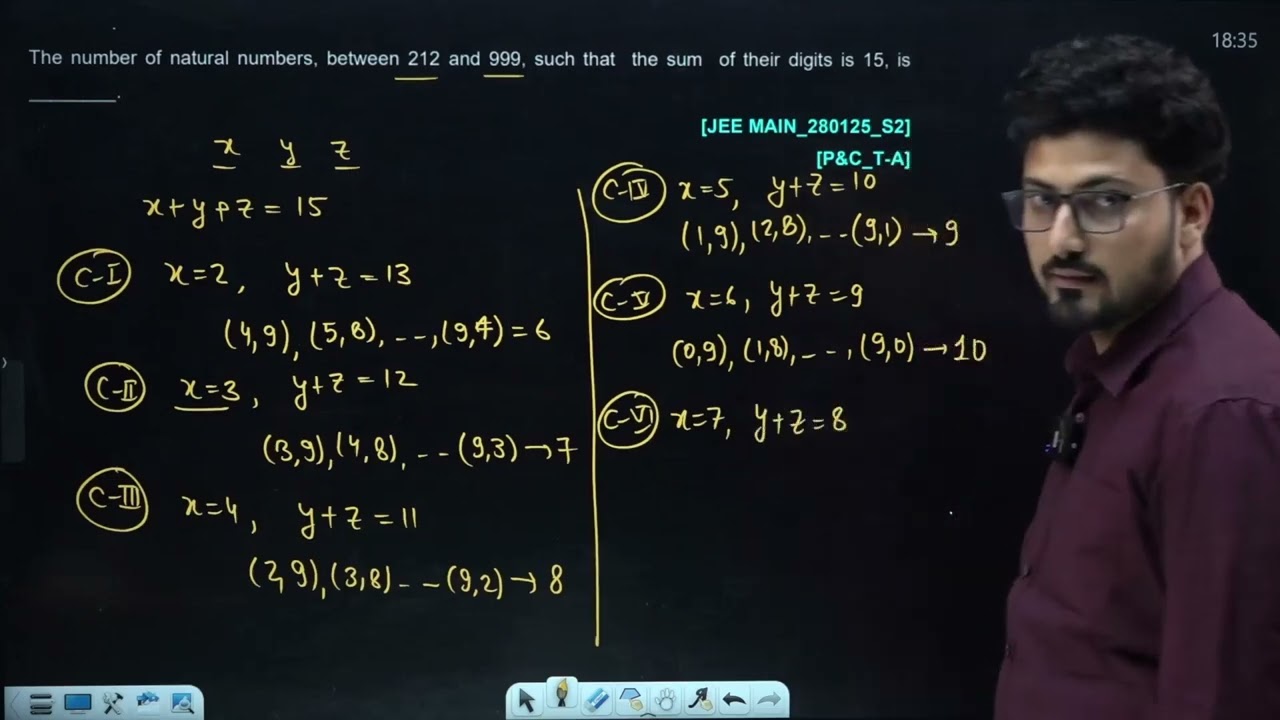 18:35
The number of natural numbers, between 212 and 999, such that the sum of their digits is 15, is
__________.
[JEE MAIN_280125_S2]
[P&C_T-A]
x y z
x+y+z = 15
C-I x=2, y+z=13
(4,9), (5,8), ---, (9,4) = 6
C-II x=3, y+z=12
(3,9), (4,8), -- (9,3) → 7
C-III x=4, y+z=11
(2,9), (3,8) -- (9,2) → 8
C-IV x=5, y+z=10
(1,9), (2,8), -- (9,1) → 9
C-V x=6, y+z=9
(0,9), (1,8), ---, (9,0) → 10
C-VI x=7, y+z=8